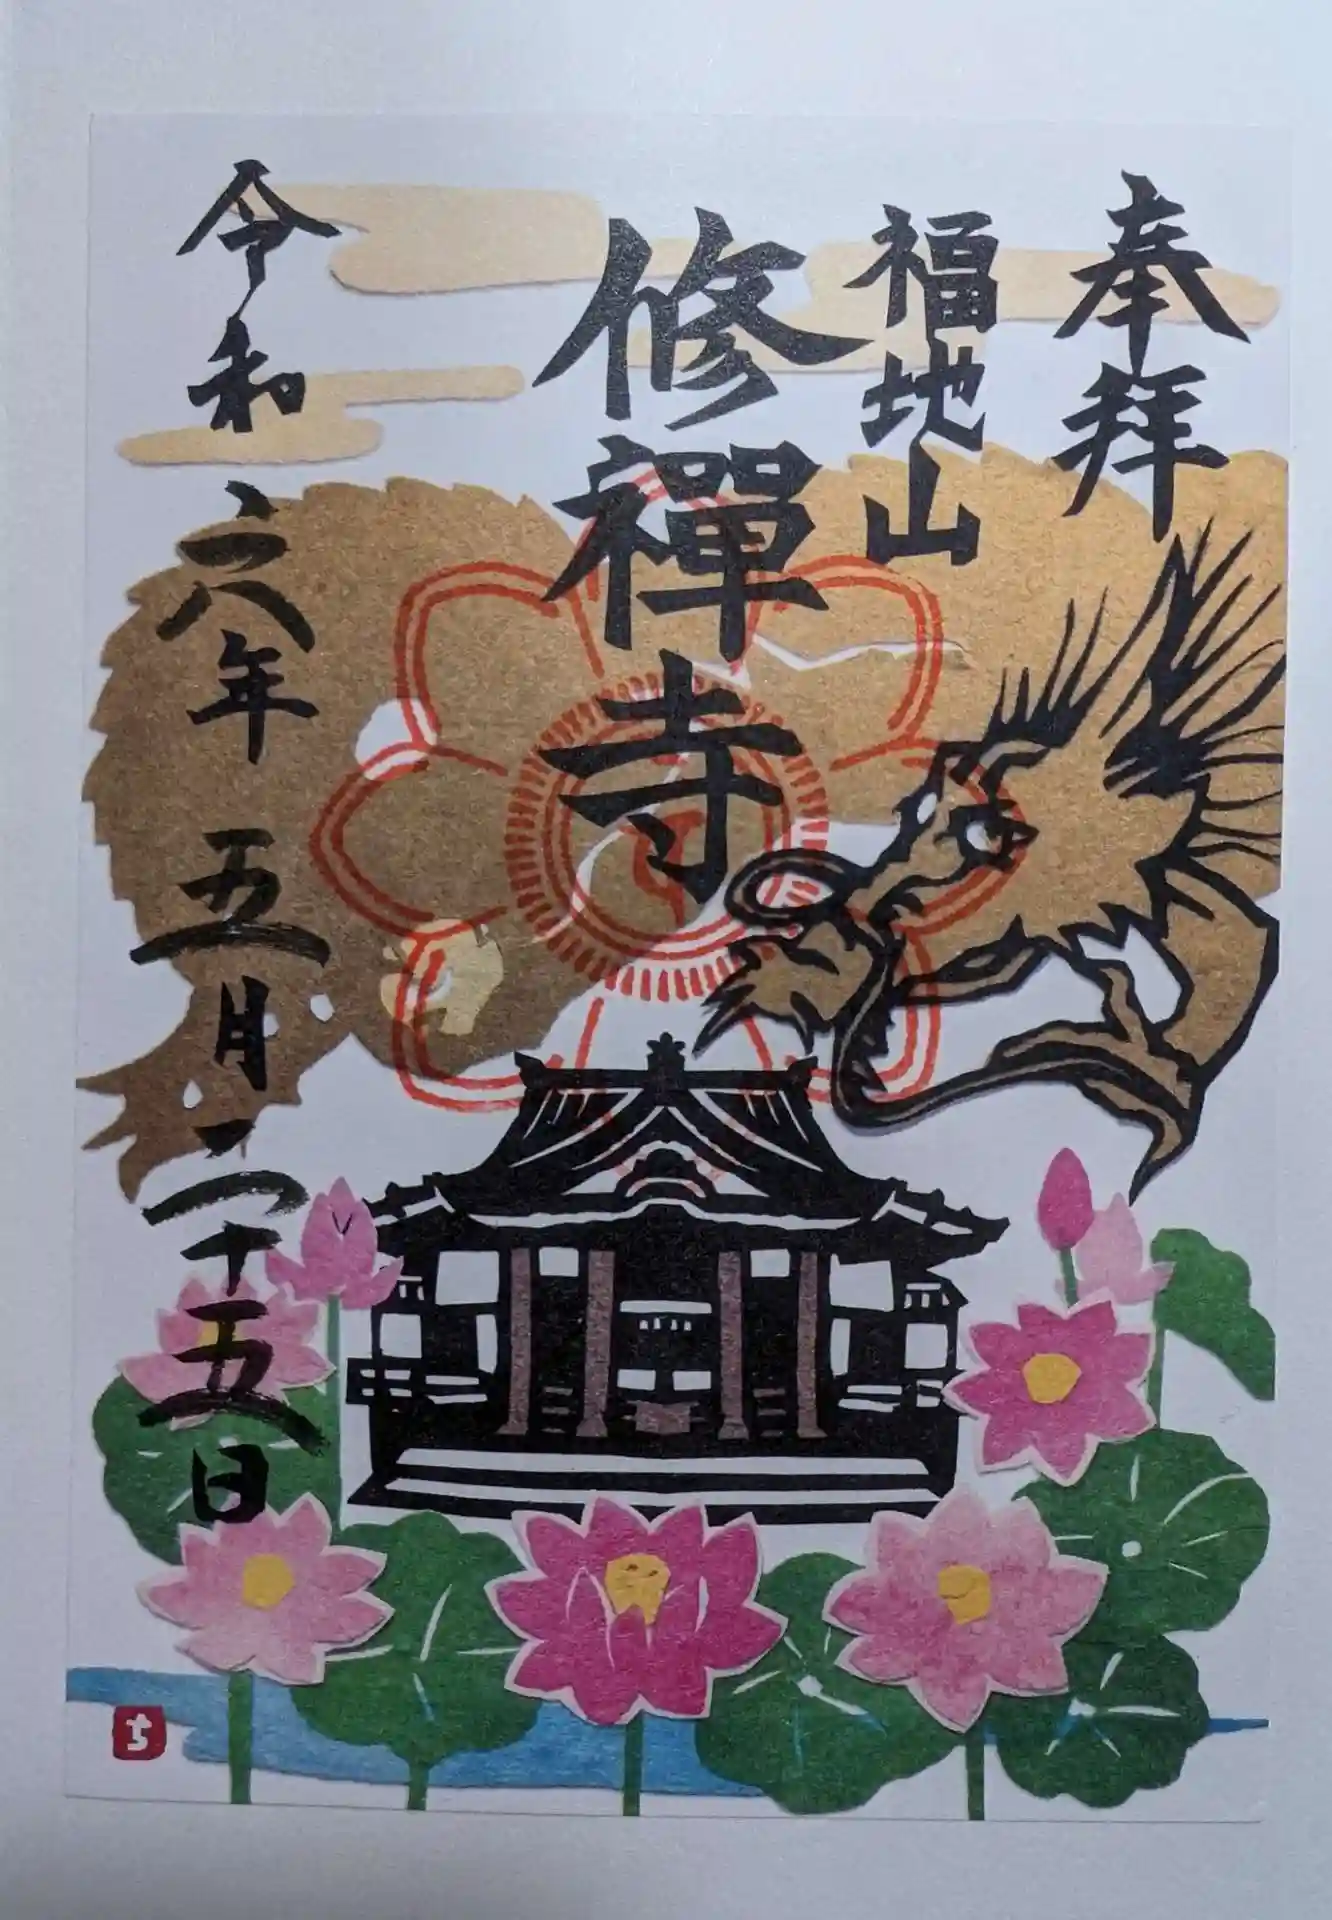 奉拜
福地山
修禪寺
令和六年五月二十五日
ち